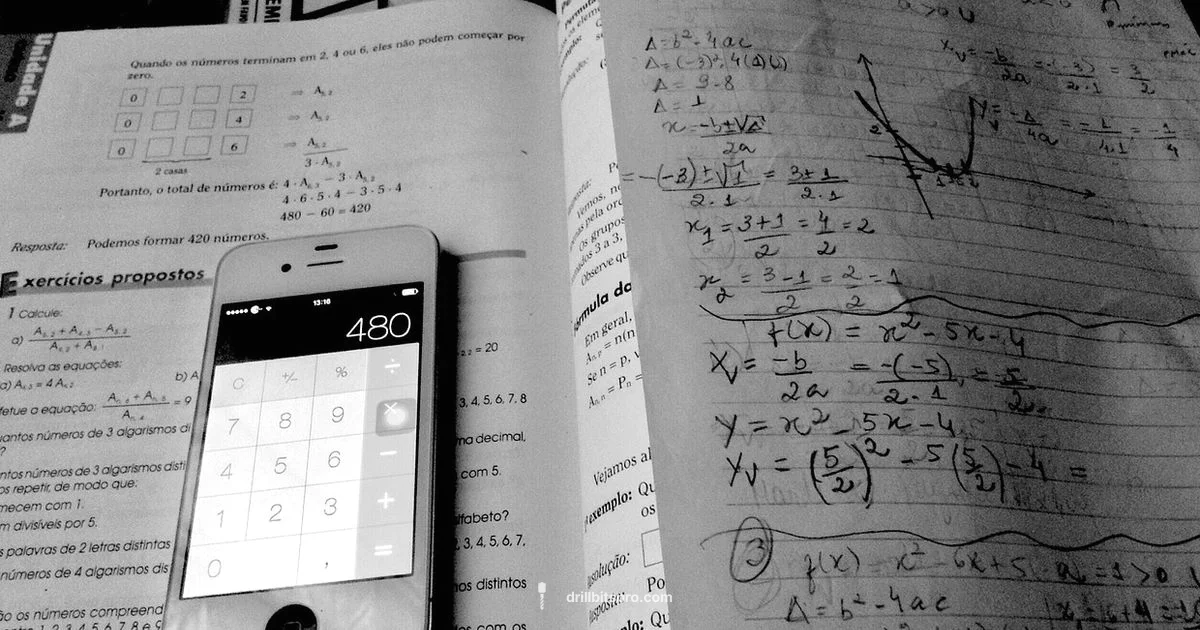 Unidade A
Quando os números terminam em 2, 4 ou 6, eles não podem começar por
zero.
0 2 ⇒ A₅,₂
0 4 ⇒ A₅,₂
0 6 ⇒ A₅,₂
3 · A₅,₂
2 casas
Portanto, o total de números é: 4 · A₆,₃ − 3 · A₅,₂
4 · 6 · 5 · 4 − 3 · 5 · 4
480 − 60 = 420
Resposta: Podemos formar 420 números.
Exercícios propostos
1 Calcule:
a)
Resolva as equações:
a) Aₙ,₃ = 4 Aₙ,₂
b) A
etue a equação:
= 9
uantos números de 3 algarismos di
?
ntos números de 3 algarismos disti
os repetir, de modo que:
mecem com 1.
m divisíveis por 5.
s palavras de 2 letras distintas
números de 4 algarismos dis
ão os números compreend
= 20
3, 4, 5, 6, 7, 8
na decimal,
com 5.
lfabeto?
2, 3, 4, 5, 6, 7,
nos distintos
com os
13:16
480
C +/− % ÷
7 8 9 ×
4 5 6 −
1 2 3 +
0 , =
Vemos, no
nas pela ord
Os grupos
nados 3 a 3,
Observe qu
órmula do
Em geral,
Aₙ,ₚ = n(n
Se n = p, v
Aₙ,ₙ = Pₙ =
Vejamos al
exemplo: Qu
os
esolução:
Po
Qu
Δ = b² - 4ac
Δ = (-3)² - 4(1)(2)
Δ = 9 - 8
Δ = 1
x = -b ± √Δ / 2a
= -(-3) ± √1 / 2·1 = 3 ± 1 / 2·1
x₁ = 3+1 / 2 = 4/2 = 2
x₂ = 3-1 / 2 = 2/2 = 1
Xᵥ = -b/2a = -(-3)/2·1 = 3/2
Yᵥ = -Δ/4a = -1/4·1 = -1/4
2
f(x) = x² - 5x - 4
Xᵥ = -b/2a = -(-5)/2·1 = 5/2
y = x² - 5x - 4
Yᵥ = (5/2)² - 5(5/2) - 4 =
3 f(x) = x² - 6x + 5 a = 1 > 0
Δ = b² - 4ac
drillbitspro.com